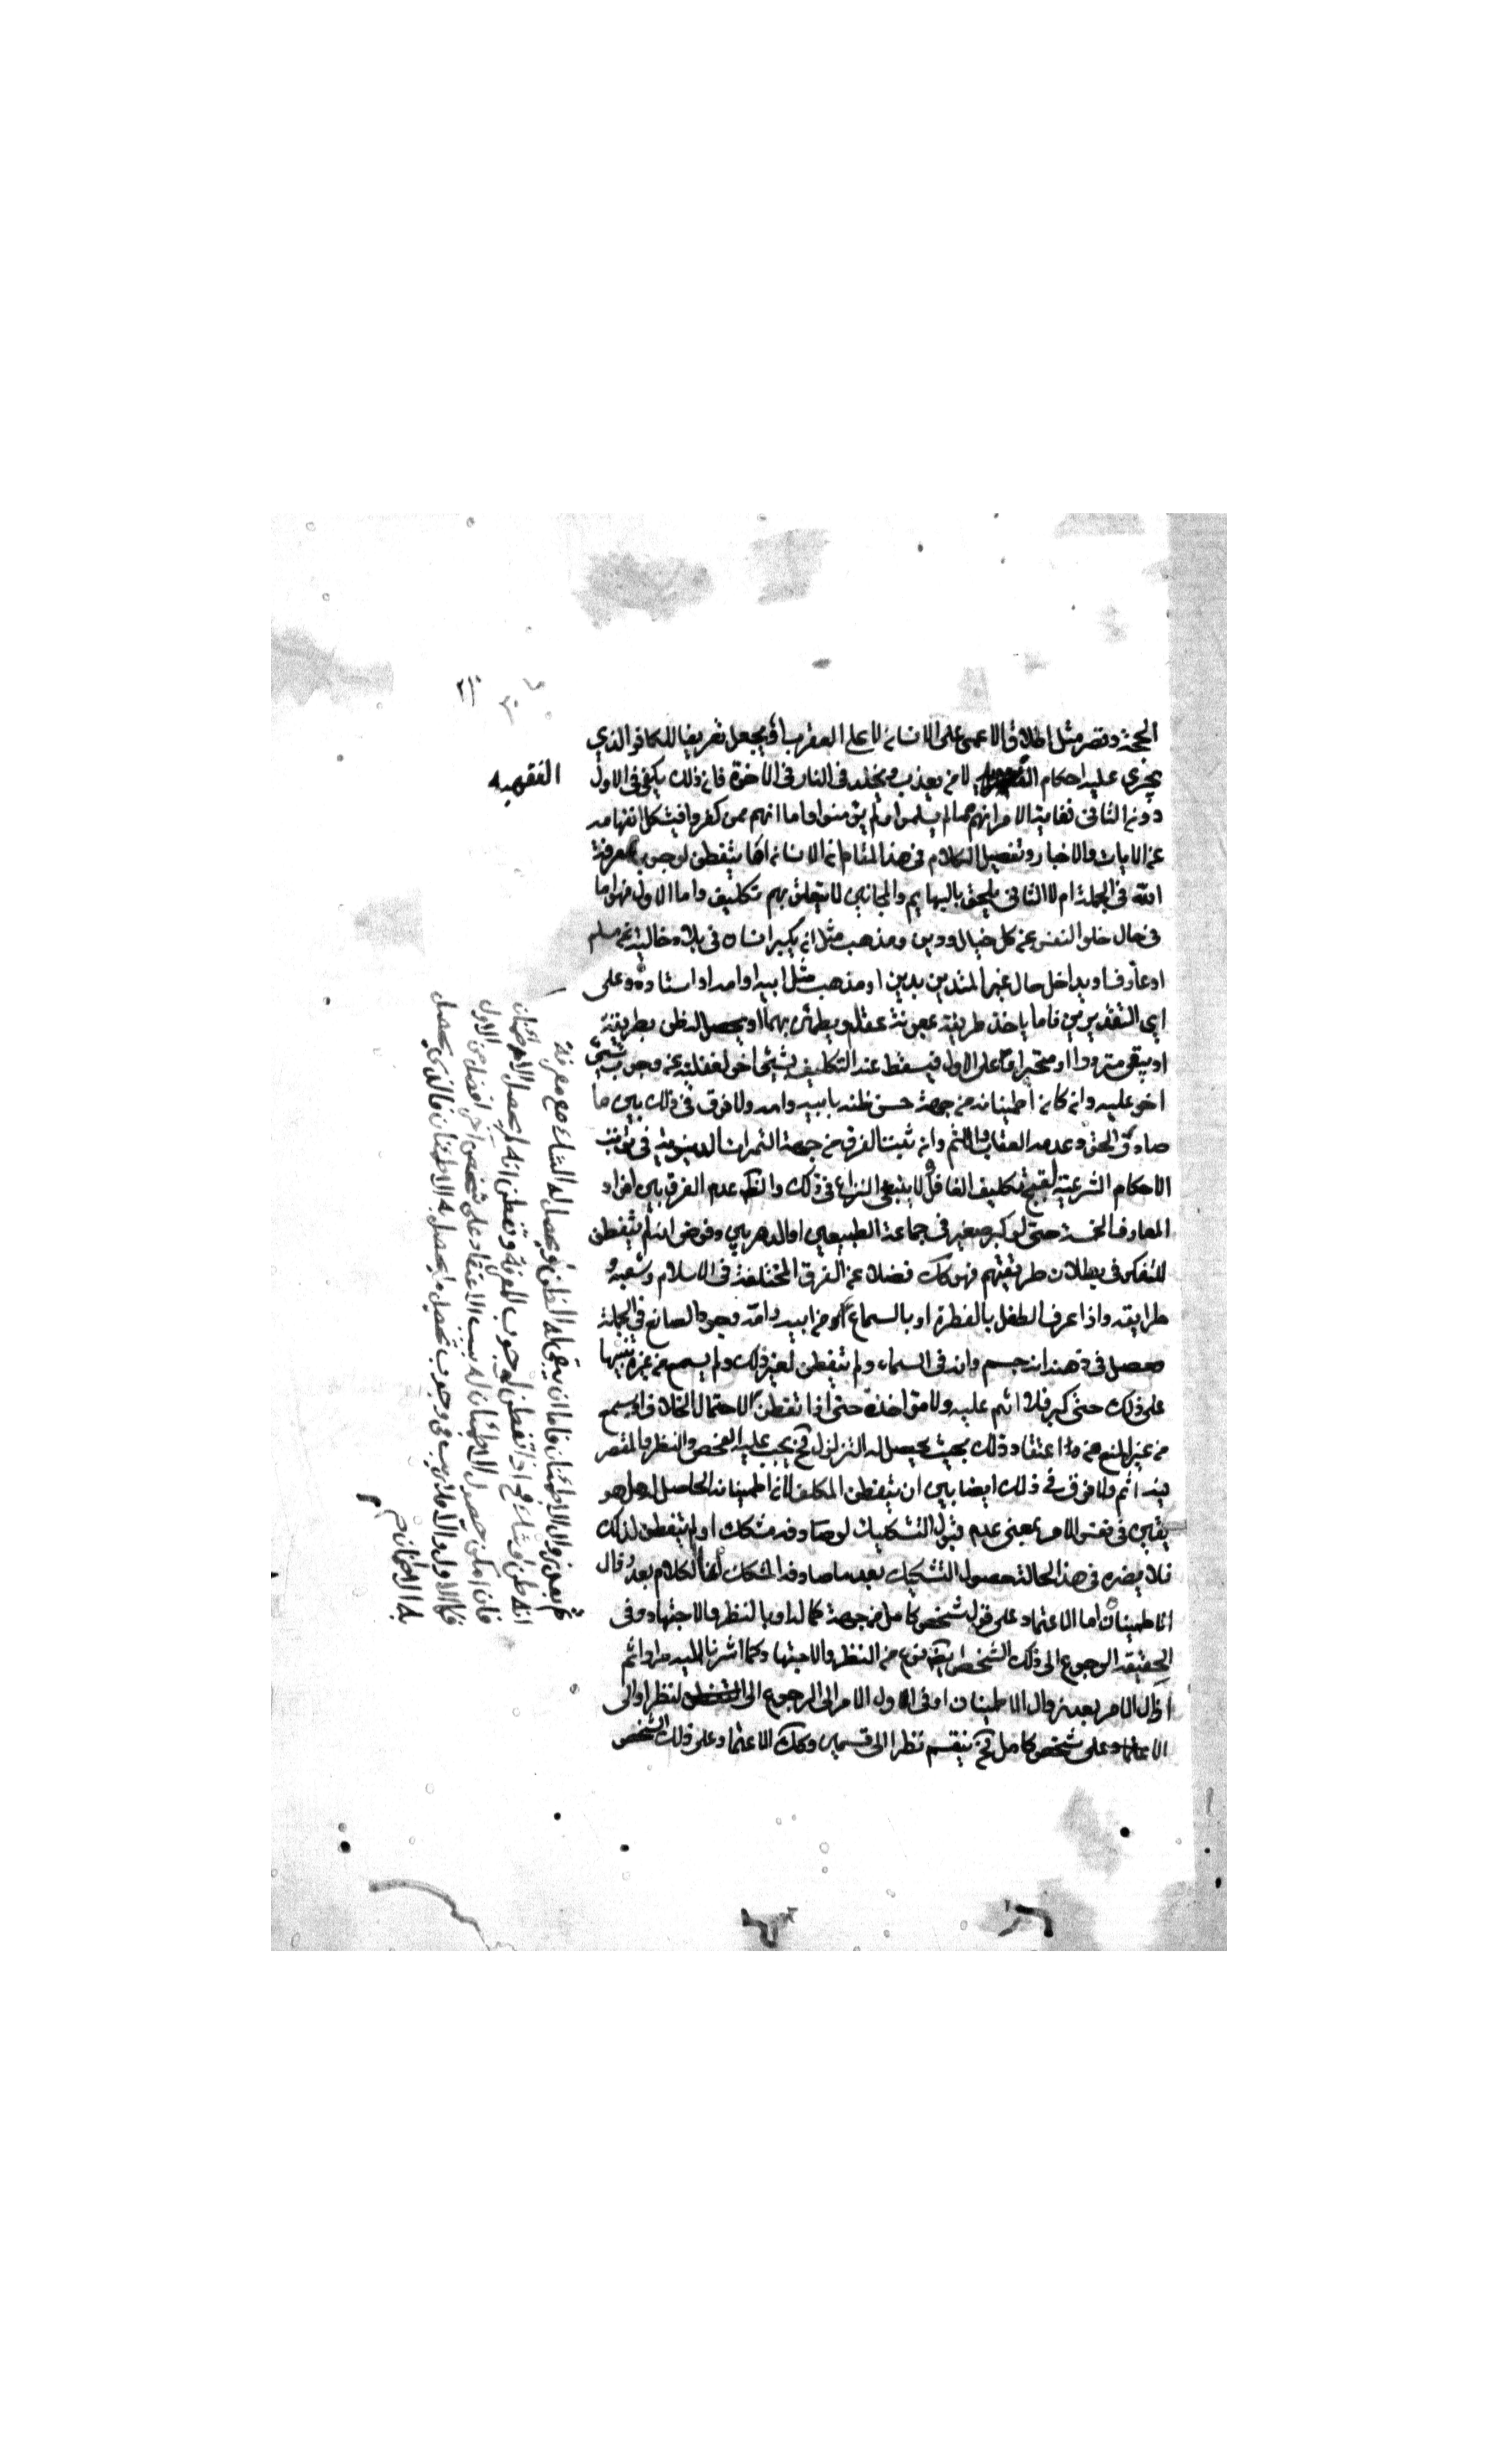 الحجة ونصر مثل اطلاق الاعمى على الانسان لا على العقرب او يجعل تعريفا للكافر الذي
يجري عليه احكام لا من يعذب ويخلد في النار في الاخرة فان ذلك يكفي في الاول
الفقهيه
دون الثاني فغاية الامر انهم مما لم يسلموا ولم يؤمنوا واما انهم ممن كفروا فيشكل انفهامه
عن الايات والاخبار وتفصيل الكلام في هذا المقام ان الانسان اما يتفطن لوجوب معرفة
الله في الجملة ام لا الثاني يلحق بالبهايم والمجانين لا يتعلق بهم تكليف واما الاول فهو اما
في حال خلو النفس عن كل خيال ودين ومذهب مثل ان يكبر انسان في بلاد خالية عن مسلم
او عارف او يداخل حال غير المتدين بدين او مذهب مثل ابيه او امه او استاده وعلى
اي التقديرين فاما ياخذ طريقة بمعونة عقله ويطمئن بها او يحصل الظن بطريقة
او يبقى مترددا او متحيرا فاما على الاول فيسقط عنه التكليف بشيء اخر لغفلته عن وجوب شيء
اخر عليه وان كان اطمينانه من جهة حسن ظنه بابيه وامه ولا فرق في ذلك بين ما
صادق الحق وعدمه العقاب والاثم وان ثبت الفرق من جهة الثمرات الدينوية في ترتب
الاحكام الشرعية لقبح تكليف الغافل ولا ينبغي النزاع في ذلك والظ عدم الفرق بين افراد
المعارف الخمسة حتى لو كبر صغير في جماعة الطبيعيين او الدهريين وفرض انه لم يتفطن
للتفكر في بطلان طريقتهم فهو كك فضلا عن الفرق المختلفة في الاسلام وشعبه و
طرايقه واذا عرف الطفل بالفطرة او بالسماع من ابيه وامه وجود الصانع في الجملة
وحصل في ذهنه انه جسم وانه في السماء ولم يتفطن لغير ذلك ولم يسمع من غيره تنبيها
على ذلك حتى كبر فلا اثم عليه ولا مؤاخذة حتى اذا تفطن لاحتمال الخلاف او يسمع
من غير المنع من اعتقاد ذلك بحيث يحصل له التزلزل فح يجب عليه الفحص والنظر والمقصر
فيه اثم ولا فرق في ذلك ايضا بين ان يتفطن المكلف لان اطمينانه الحاصل له هل هو
يقين في نفس الامر بمعنى عدم قبول التشكيك لو صادفه مشكك او لم يتفطن لذلك
فلا يضره في هذا الحالة حصول التشكيك بعد ما صادفه المشكك انما الكلام بعد زوال
الاطمينان اما الاعتماد على قول شخص كامل من جهة كماله او بالنظر والاجتهاد وفي
الحقيقة الرجوع الى ذلك الشخص ايض نوع من النظر والاجتهاد وكما اشرنا اليه مرارا ثم
اذ ال الامر بعد زوال الاطمينان او في اول الامر الى الرجوع الى النظر او الى
الاعتماد على شخص كامل فح ينقسم نظرا الى قسمين وكك الاعتماد على ذلك الشخص
ثم بعد زوال الاطمئنان فاما ان يبقى له الظن او يحصل له الشك مع معرفة
انه ظن او شك فح اذا تفطن لوجوب المعرفة وتفطن انه لم يحصل الاطمئنان
فان امكن حصول الاطمئنان له بسبب الاعتماد على شخص اخر افضل من الاول
فكالاول والا فلا ريب في وجوب تحصيل ما يحصل به الاطمئنان فالذي يحصل
به الاطمئنان